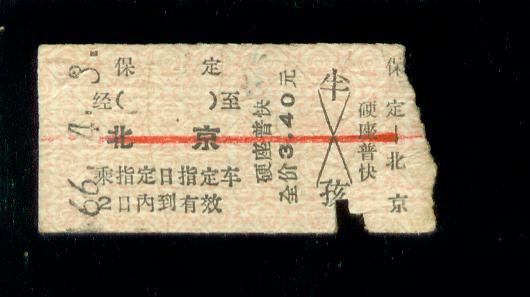 保定
经( )至
北京
乘指定日指定车
2日内到有效
硬座普快
全价3.40元
半
孩
保定—北京
硬座普快
66.4.3.